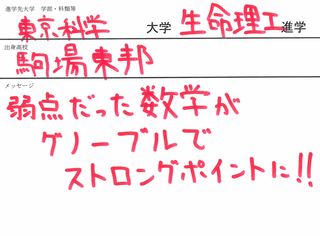 進学先大学 学部・科類等
東京科学 大学 生命理工 進学
出身高校
駒場東邦
メッセージ
弱点だった数学が
ゲノーブルで
ストロングポイントに!!